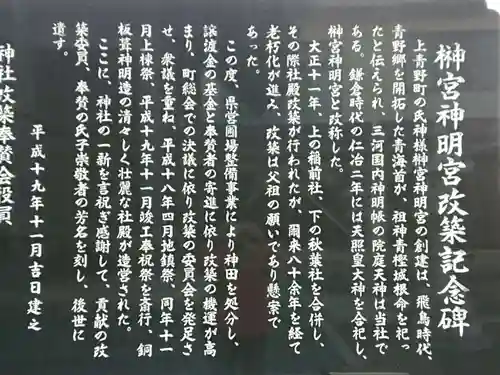 榊宮神明宮改築記念碑
上青野町の氏神様榊宮神明宮の創建は、飛鳥時代、
青野郷を開拓した青海首が、祖神青樫城根命を祀っ
たと伝えられ、三河国内神明帳の院庭天神は当社で
ある。鎌倉時代の仁治二年には天照皇大神を合祀し、
榊宮神明宮と改称した。
大正十一年、上の稲前社、下の秋葉社を合併し、
その際社殿改築が行われたが、爾来八十余年を経て
老朽化が進み、改築は父祖の願いであり懸案で
あった。
この度、県営圃場整備事業により神田を処分し、
譲渡金の基金と奉賛者の寄進に依り改築の機運が高
まり、町総会での決議に依り改築の委員会を発足さ
せ、衆議を重ね、平成十八年四月地鎮祭、同年十一
月上棟祭、平成十九年十一月竣工奉祝祭を斎行、銅
板葺神明造の清々しく壮麗な社殿が造営された。
ここに、神社の一新を言祝ぎ感謝して、貢献の改
築委員、奉賛の氏子崇敬者の芳名を刻し、後世に
遺す。
平成十九年十一月吉日建之
神社改築奉賛会役員